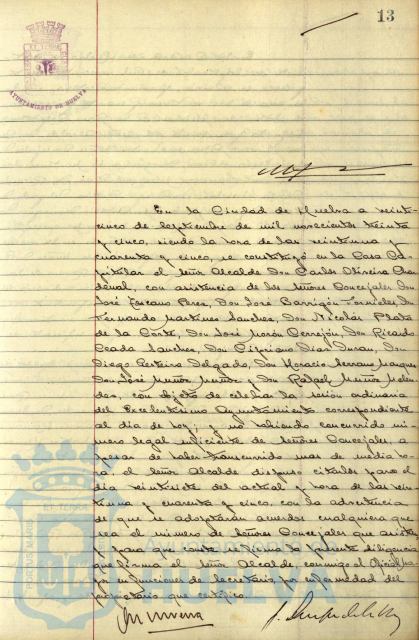 13
AYUNTAMIENTO DE HUELVA
En la Ciudad de Huelva a veinti-
cinco de Septiembre de mil novecientos treinta
y cinco, siendo la hora de las veintiuna y
cuarenta y cinco, se constituyó en la Casa Ca-
pitular el Señor Alcalde Don Carlos Oliveira Chan-
denal, con asistencia de los Señores Concejales Don
José Lozcano Perez, Don José Barrigón Fornieles, Don
Fernando Martinez Sanchez, Don Nicolas Plata
de la Corte, Don José Morón Cerrejón, Don Ricardo
Sanchez, Don Cipriano Diaz Duran, Don
Diego Delgado, Don Horacio Serrano Marquez
Don José Muñoz Muñoz y Don Rafael Muñoz
con objeto de celebrar la sesión ordinaria
del Excelentísimo Ayuntamiento correspondiente
al día de hoy; y no habiendo concurrido nú-
mero legal suficiente de Señores Concejales, a
pesar de haber transcurrido mas de media ho-
ra, el Señor Alcalde dispuso citarles para el
día veintisiete del actual y hora de las vein-
tiuna y cuarenta y cinco, con la advertencia
de que se adoptarán acuerdos cualquiera que
sea el número de Señores Concejales que asistan
y para que conste se firma la presente diligencia
que firma el Señor Alcalde, conmigo el Oficial Ma-
yor en funciones de Secretario por enfermedad del
propietario que certifico.